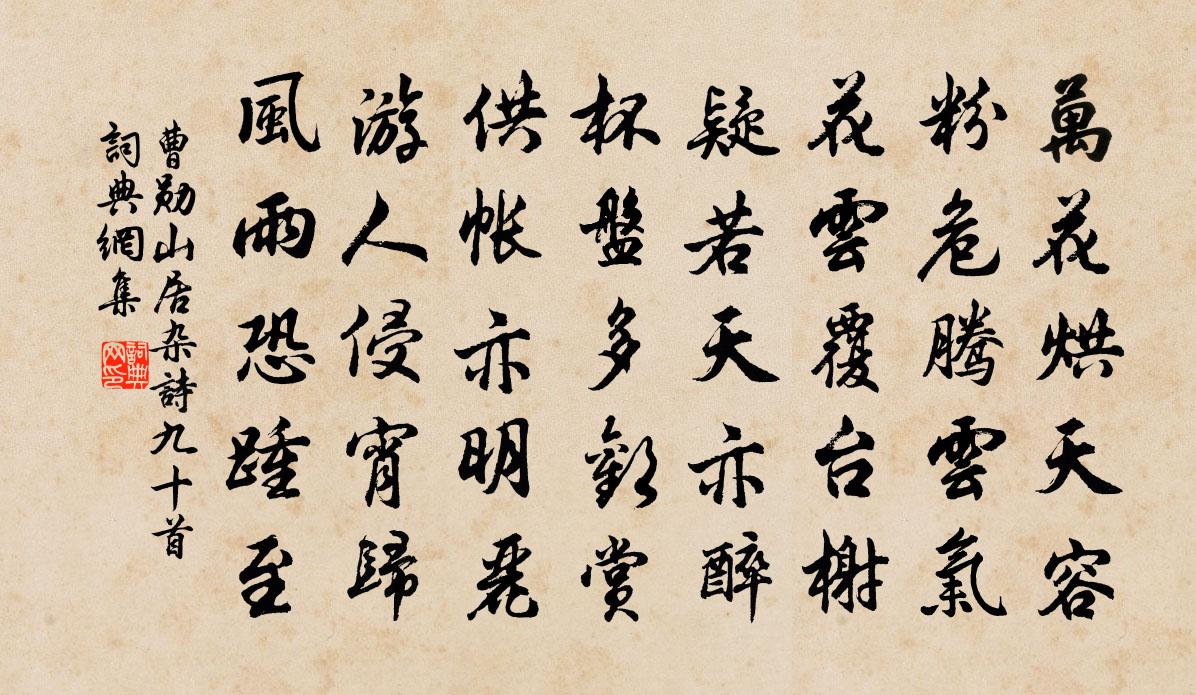 萬花烘天容
粉危騰雲氣
花雲覆台榭
疑若天亦醉
杯盤多歡賞
供帳亦明麗
游人侵宵歸
風雨恐踵至
曹勛山居杂詩九十首
詞典網集
詞典網印